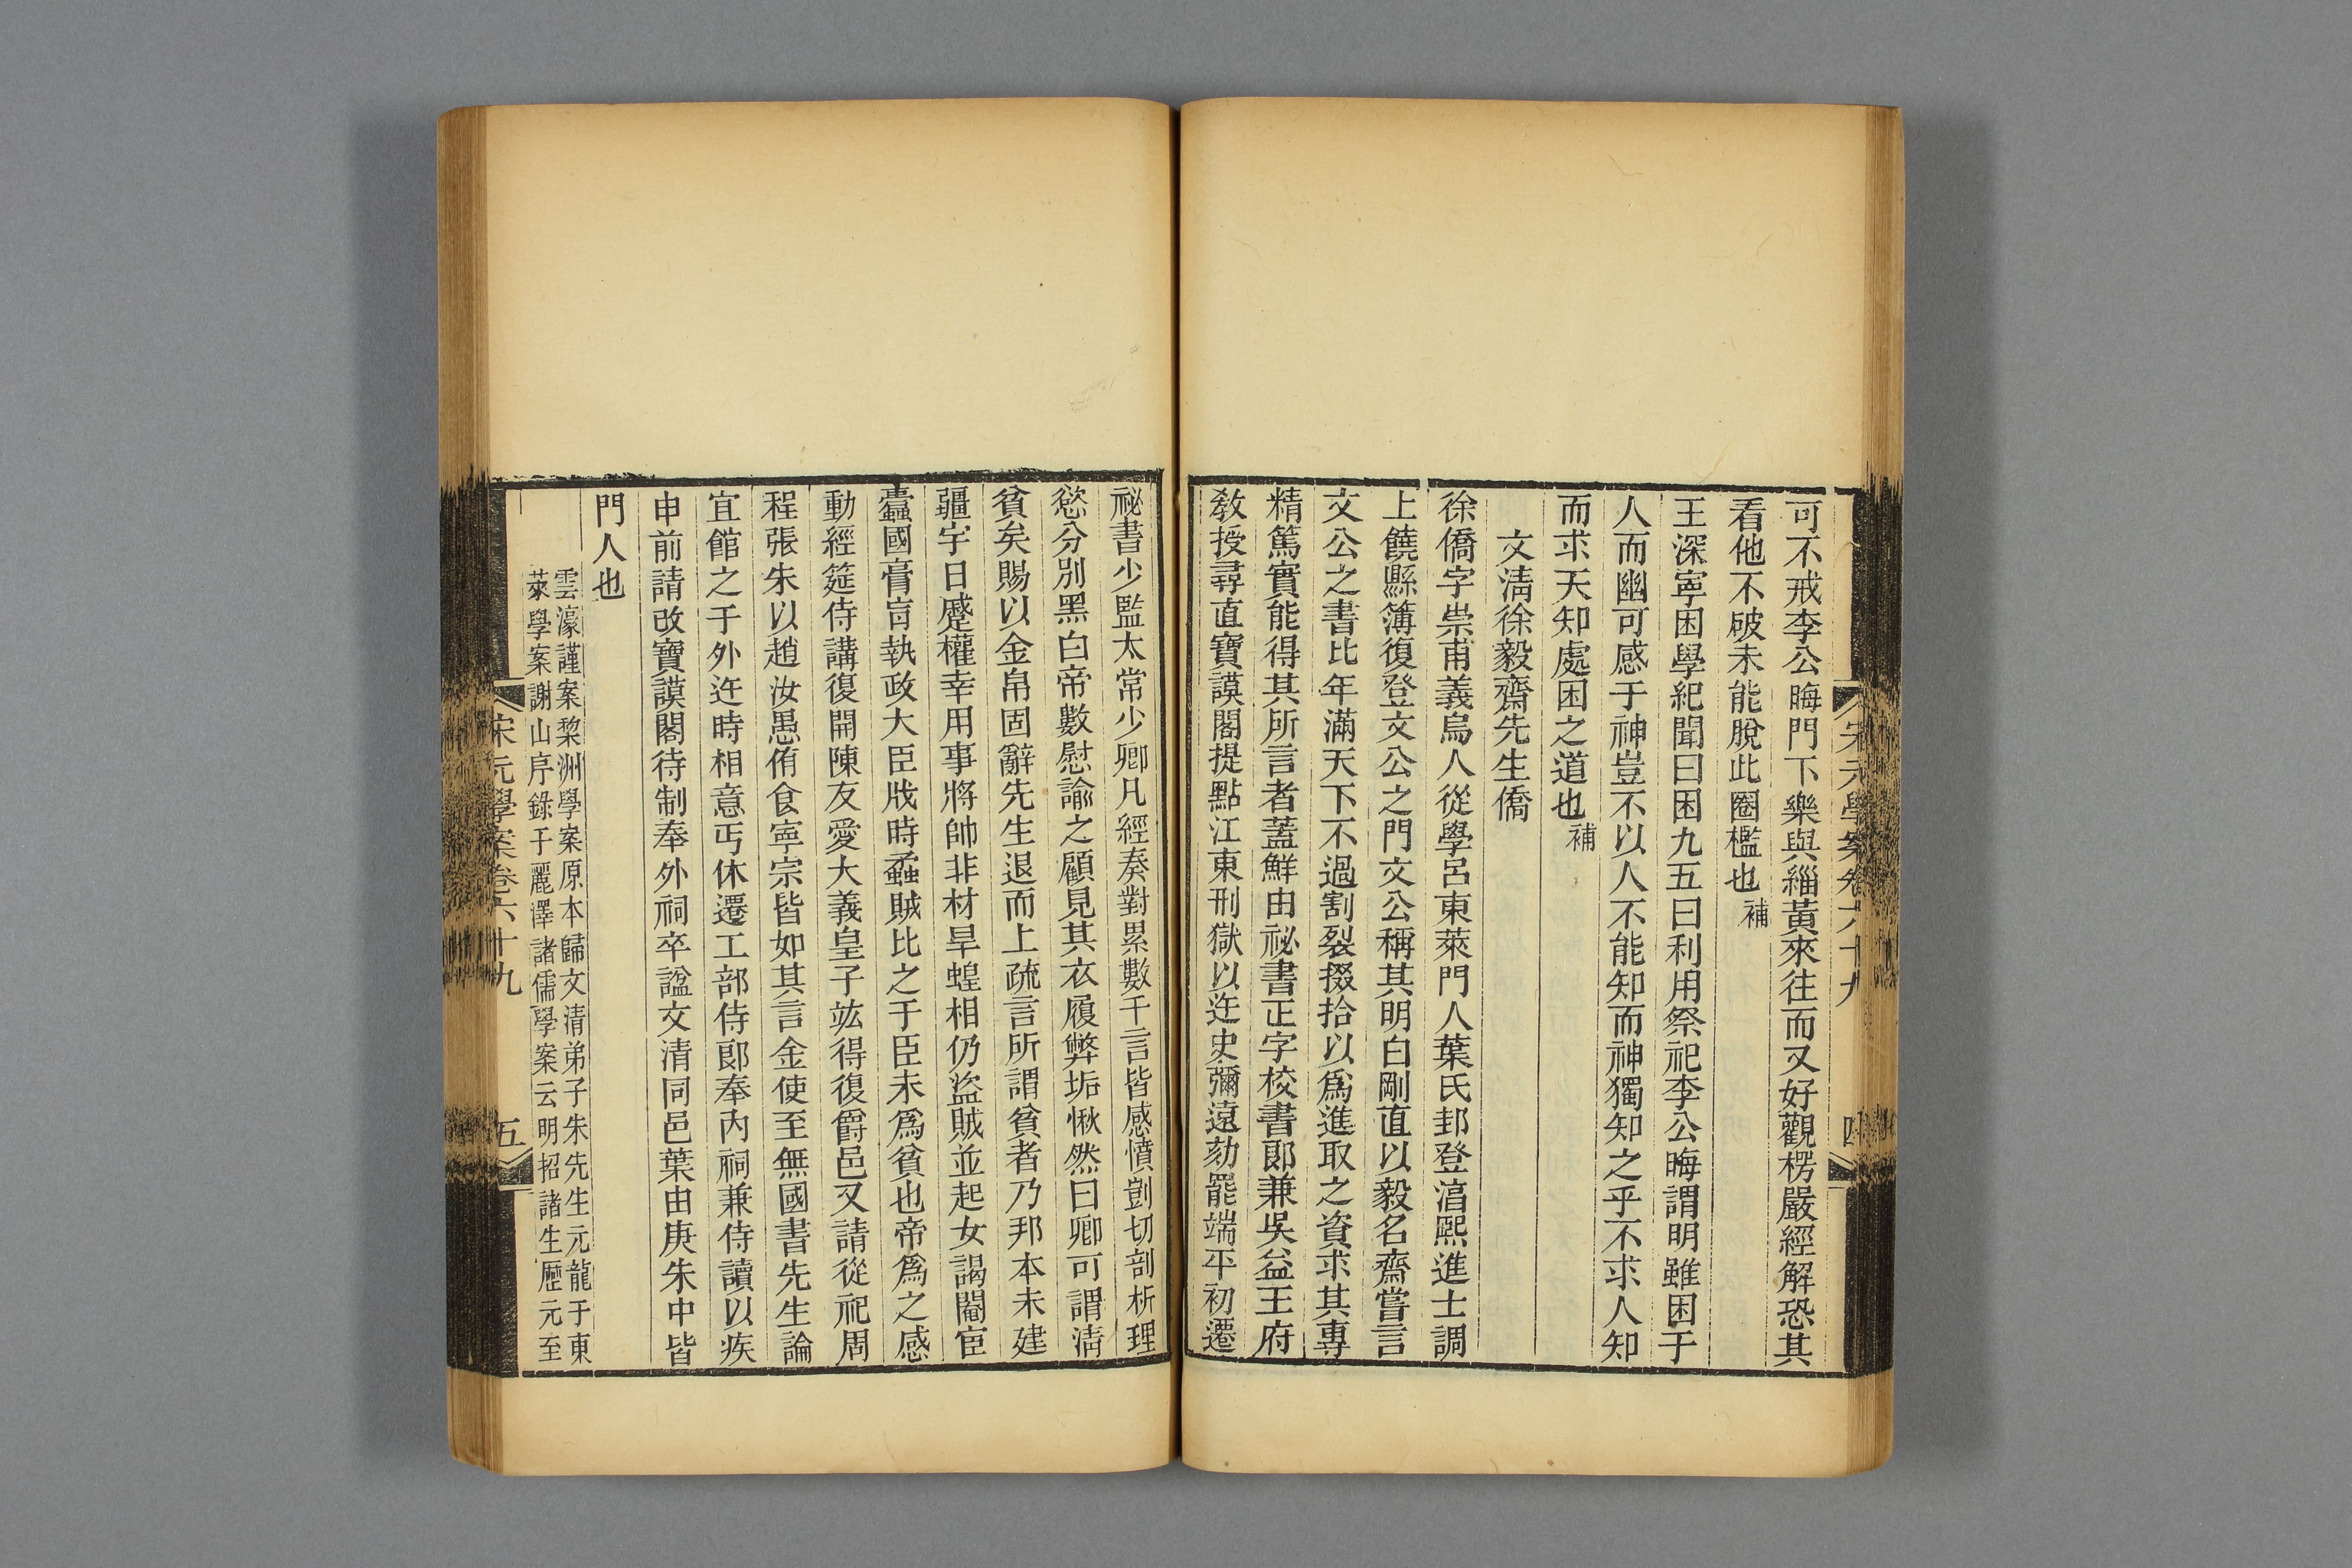 可不戒李公晦門下樂與緇黃來往而又好觀楞嚴經解恐其
看他不破未能脫此圈檻也補
王深寧困學紀聞曰困九五曰利用祭祀李公晦謂明雖困于
人而幽可感于神豈不以人不能知而神獨知之乎不求人知
而求天知處困之道也補
文淸徐毅齋先生僑
徐僑字崇甫義烏人從學呂東萊門人葉氏邽登淳熙進士調
上饒縣簿復登文公之門文公稱其明白剛直以毅名齋嘗言
文公之書比年滿天下不過割裂掇拾以爲進取之資求其專
精篤實能得其所言者蓋鮮由祕書正字校書郞兼吳益王府
敎授尋直寶謨閣提點江東刑獄以迕史彌遠劾罷端平初遷
宋元學案卷六十九
四
祕書少監太常少卿凡經奏對累數千言皆感憤剴切剖析理
慾分別黑白帝數慰諭之顧見其衣履弊垢愀然曰卿可謂淸
貧矣賜以金帛固辭先生退而上疏言所謂貧者乃邦本未建
疆宇日蹙權幸用事將帥非材旱蝗相仍盜賊並起女謁閹宦
蠹國膏肓執政大臣戕時蟊賊比之于臣未爲貧也帝爲之感
動經筵侍講復開陳友愛大義皇子竑得復爵邑又請從祀周
程張朱以趙汝愚侑食寧宗皆如其言金使至無國書先生論
宜館之于外迕時相意丐休遷工部侍郞奉內祠兼侍讀以疾
申前請改寶謨閣待制奉外祠卒諡文清同邑葉由庚朱中皆
門人也
雲濠謹案棃洲學案原本歸文清弟子朱先生元龍于東
萊學案謝山序錄于麗澤諸儒學案云明招諸生歷元至
宋元學案卷六十九
五